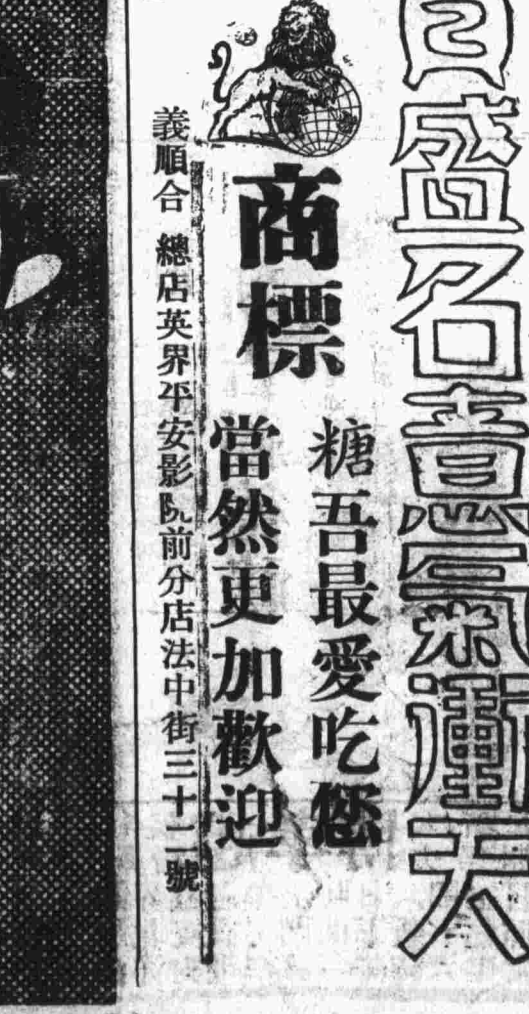 盛名意氣衝天
商標
糖吾最愛吃您
當然更加歡迎
義順合 總店英界平安影院前分店法中街三十二號